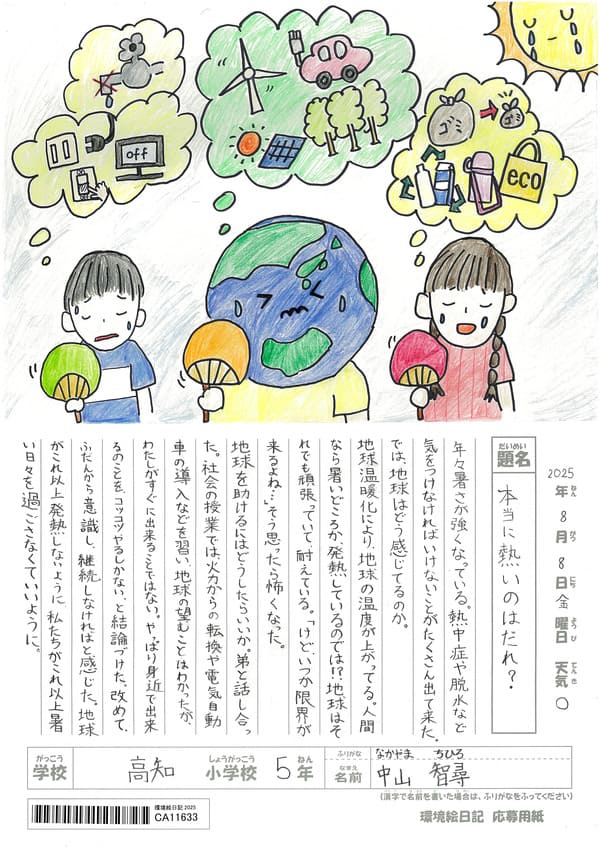 off
ゴミ
ゴミ
eco
2025年8月8日金曜日 天気○
ねん
がつ
にち
ようび
てんき
だいめい
題名
本当に熱いのはだれ？
年々暑さが強くなっている。熱中症や脱水など
気をつけなければいけないことがたくさん出て来た。
では、地球はどう感じてるのか。
地球温暖化により、地球の温度が上がってる。人間
なら暑いどころか、発熱しているのでは!?地球はそ
れでも頑張っていて、耐えている。「けど、いつか限界が
来るよね…」そう思ったら怖くなった。
地球を助けるにはどうしたらいいか。弟と話し合っ
た。社会の授業では、火力からの転換や電気自動
車の導入などを習い、地球の望むことはわかったが、
わたしがすぐに出来ることではない。やっぱり身近で出来
るのことを、コツコツやるしかない、と結論づけた。改めて、
ふだんから意識し、継続しなければと感じた。地球
がこれ以上発熱しないように、私たちがこれ以上暑
い日々を過ごさなくていいように。
がっこう
学校
高知
しょうがっこう
小学校
5
ねん
年
ふりがな
なかやま ちひろ
なまえ
名前
中山 智尋
(漢字で名前を書いた場合は、ふりがなをふってください)
環境絵日記 2025
CA11633
環境絵日記 応募用紙